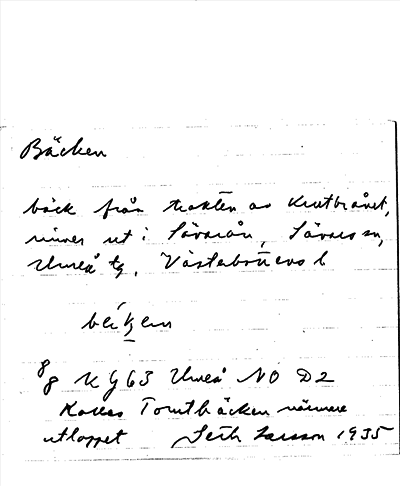 Bäcken
bäck från trakten av Krutbrånet,
rinner ut i Sävarån, Sävars sn,
Umeå tg, Västerbottens l
KG63 Umeå NO D2
Kallas Tomtbäcken närmare
utloppet Seth Larsson 1935